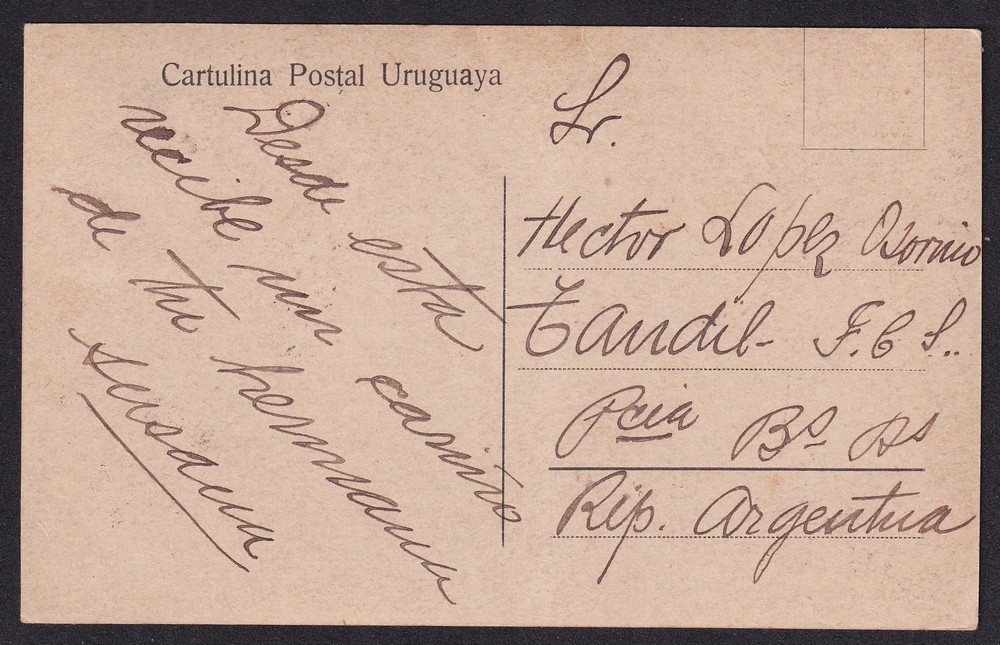 Cartulina Postal Uruguaya
Desde esta
recibe un cariño
de tu hermana
Susana
Sr.
Hector Lopez Osornio
Tandil - F. C. S..
Pcia Bs As
Rep. Argentina